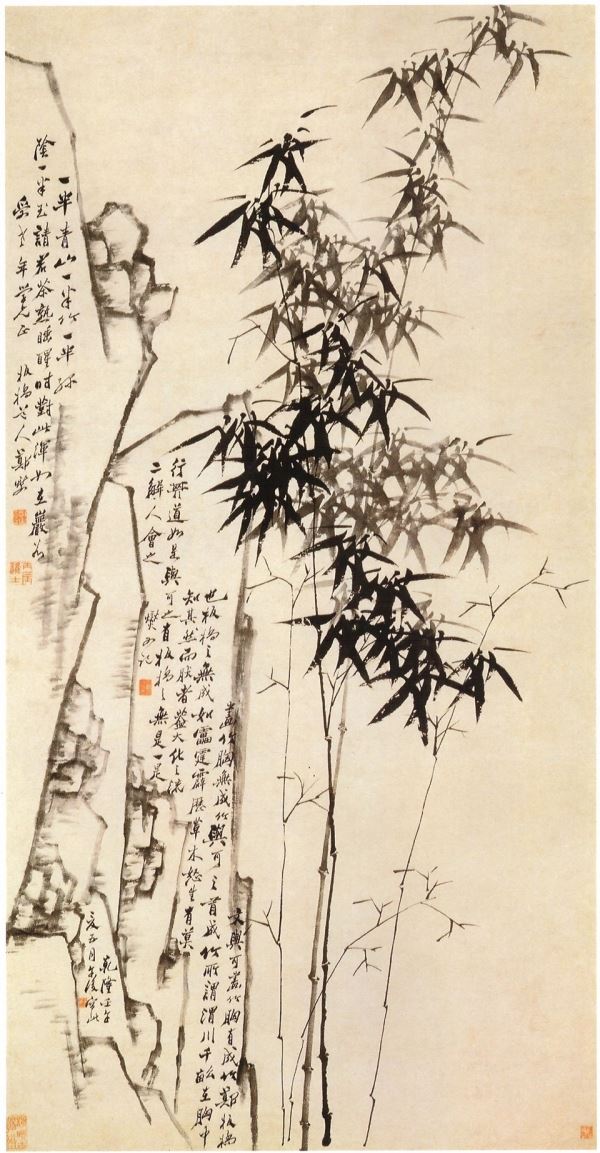 一半青山一半竹一半綠
陰一半玉請君茶熟睡醒時對此渾如在巖谷
老年學兄正 板橋道人鄭燮
文與可畫竹胸有成竹鄭板橋
畫竹胸無成竹與可之有成竹所謂渭川千畝在胸中
也板橋之無成如雷霆霹靂草木怒生有莫
知其然而然者蓋大化之流
行其道如是與可之有板橋之無是一是
二解人會之 燮又記
乾隆壬午
夏五月午後寫此